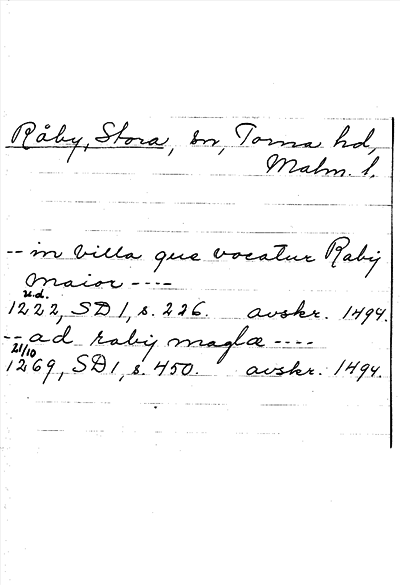 Råby, Stora, sn, Torna hd,
Malm. l.
-- in villa que vocatur Rabij
maior ----
u.d.
1222, SD 1, s. 226. avskr. 1494.
-- ad rabij magla ----
21/10
1269, SD 1, s. 450. avskr. 1494.